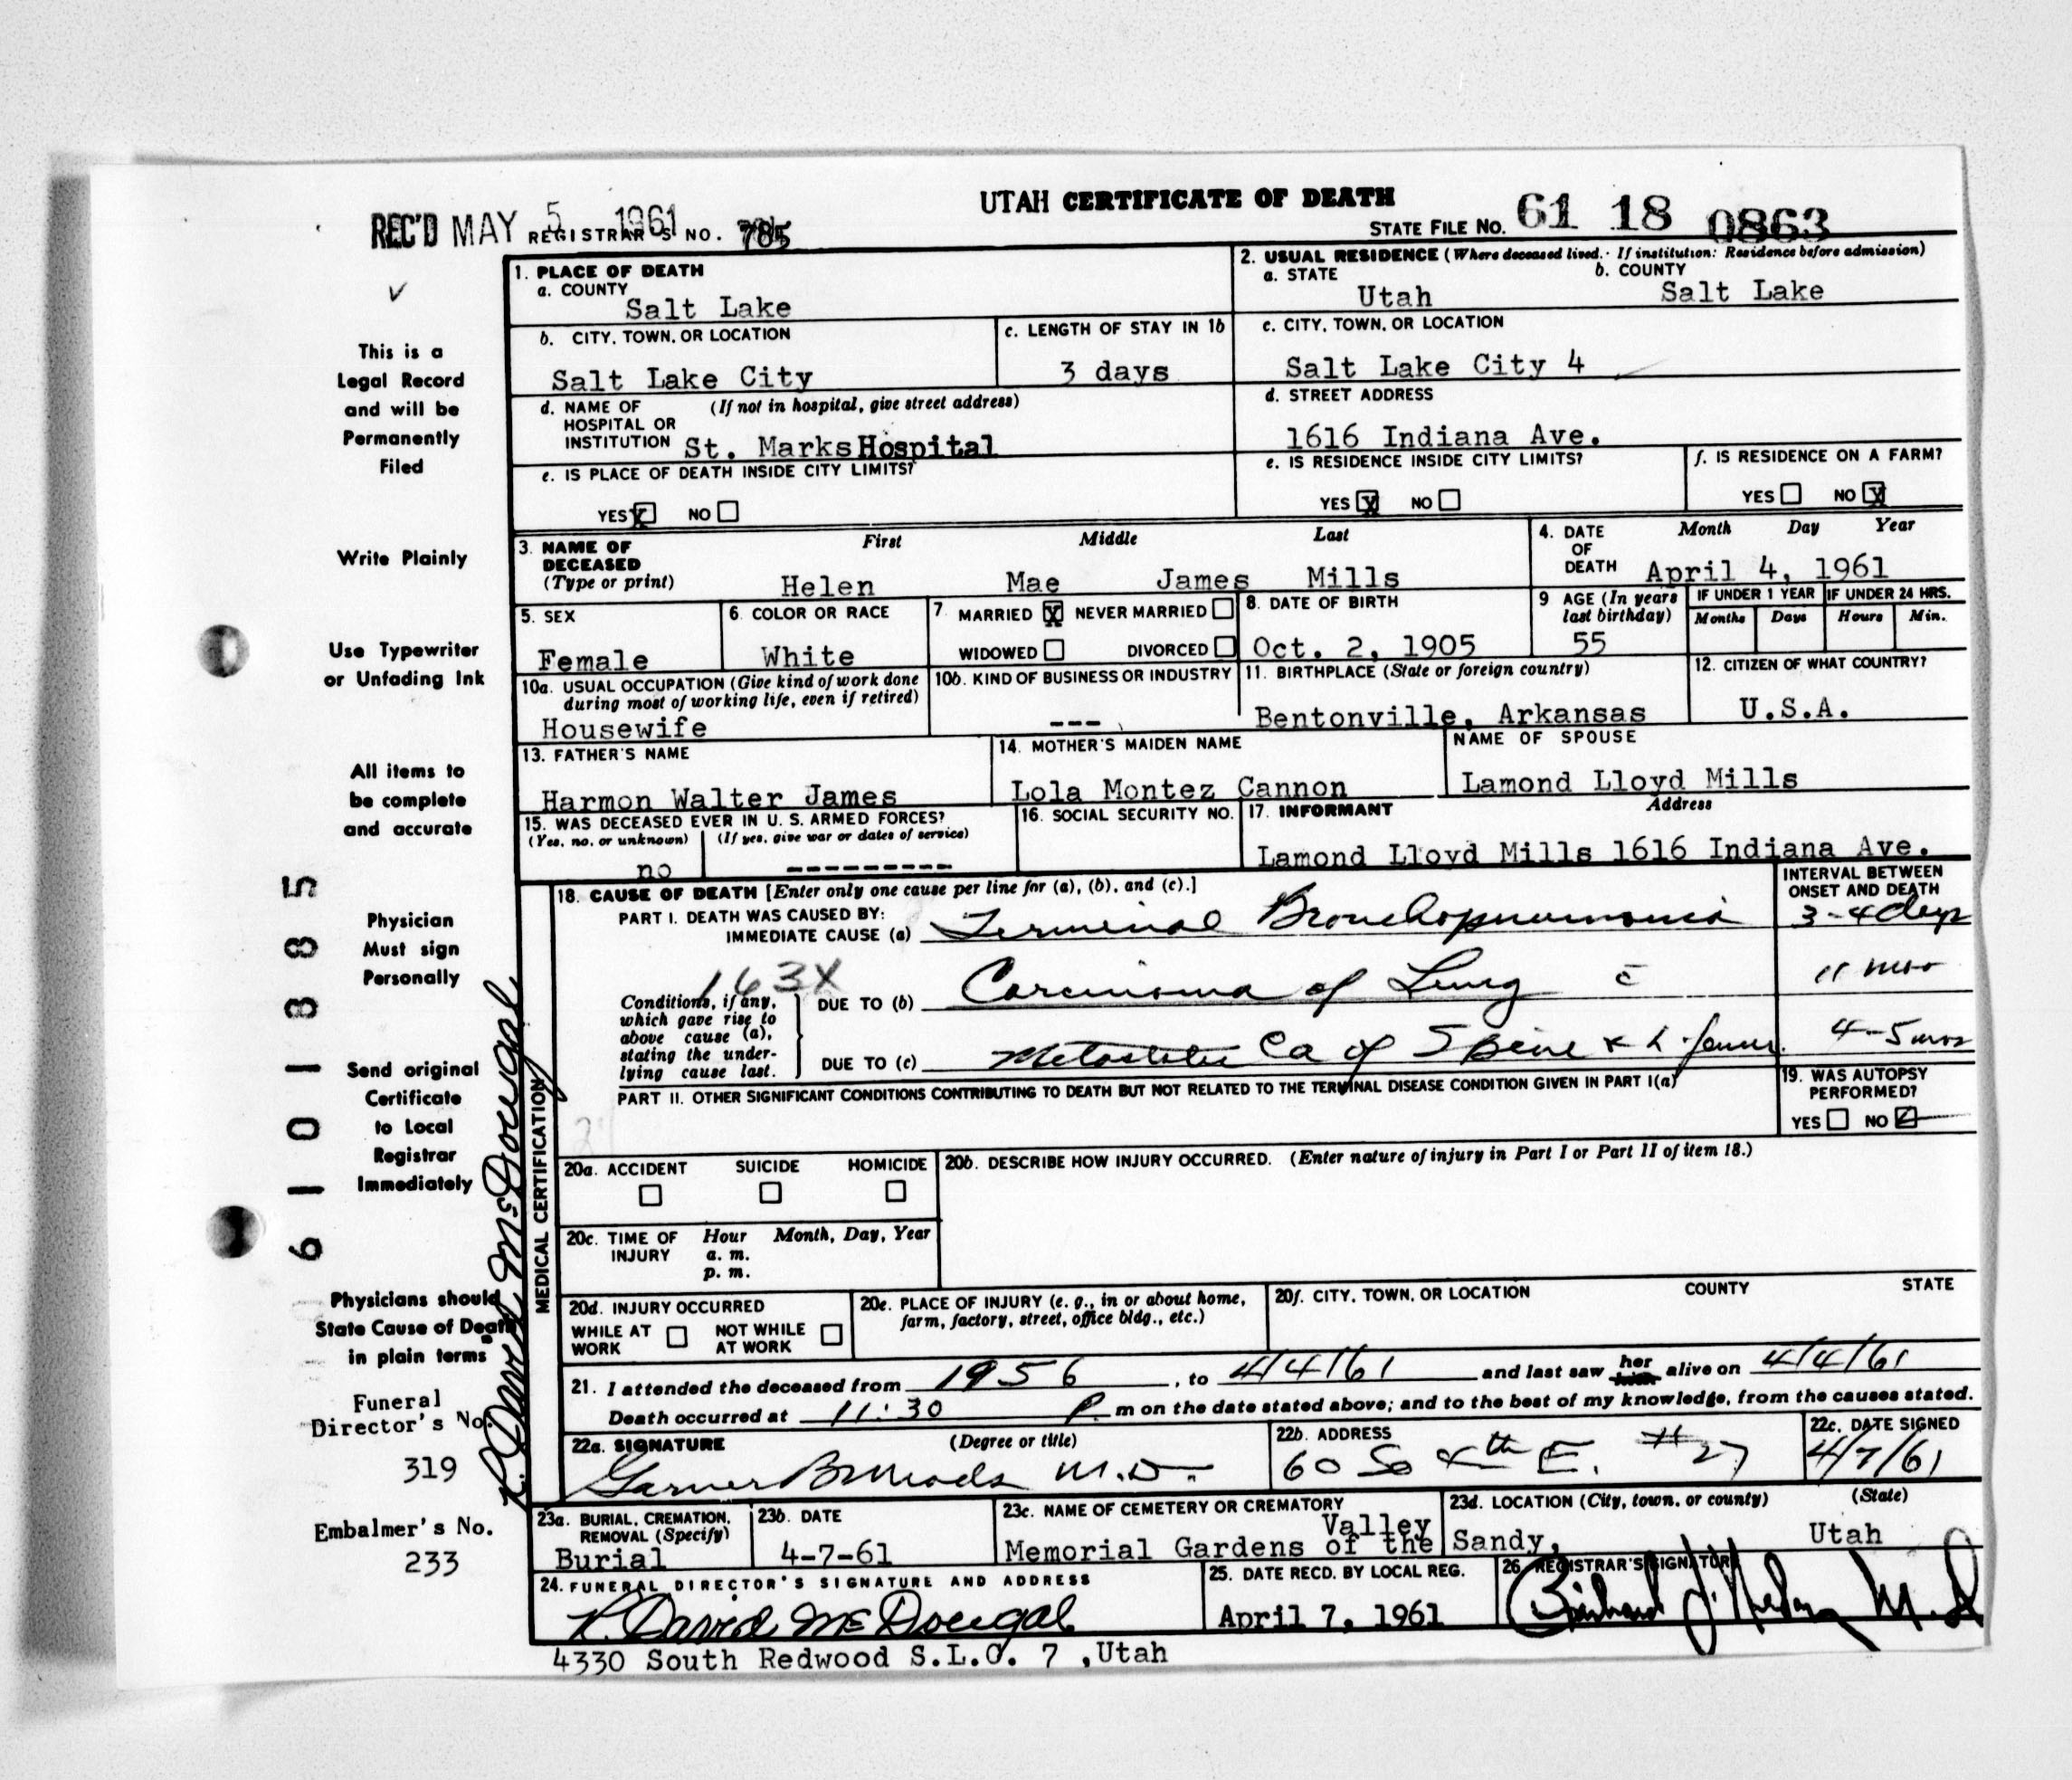 UTAH CERTIFICATE OF DEATH
REC'D MAY 5 1961 REGISTRAR'S NO. 785
STATE FILE NO. 61 18 0863
1. PLACE OF DEATH
a. COUNTY
Salt Lake
2. USUAL RESIDENCE (Where deceased lived. If institution: Residence before admission)
a. STATE b. COUNTY
Utah Salt Lake
b. CITY, TOWN, OR LOCATION
Salt Lake City
c. LENGTH OF STAY IN 1b
3 days
c. CITY, TOWN, OR LOCATION
Salt Lake City 4
d. NAME OF (If not in hospital, give street address)
HOSPITAL OR
INSTITUTION St. Marks Hospital
d. STREET ADDRESS
1616 Indiana Ave.
e. IS PLACE OF DEATH INSIDE CITY LIMITS?
YES X NO
e. IS RESIDENCE INSIDE CITY LIMITS?
YES X NO
f. IS RESIDENCE ON A FARM?
YES NO X
3. NAME OF DECEASED (Type or print)
First Middle Last
Helen Mae James Mills
4. DATE OF DEATH
Month Day Year
April 4, 1961
5. SEX
Female
6. COLOR OR RACE
White
7. MARRIED X NEVER MARRIED
WIDOWED DIVORCED
8. DATE OF BIRTH
Oct. 2, 1905
9 AGE (In years last birthday)
55
IF UNDER 1 YEAR
Months Days
IF UNDER 24 HRS.
Hours Min.
10a. USUAL OCCUPATION (Give kind of work done
during most of working life, even if retired)
Housewife
10b. KIND OF BUSINESS OR INDUSTRY
---
11. BIRTHPLACE (State or foreign country)
Bentonville, Arkansas
12. CITIZEN OF WHAT COUNTRY?
U.S.A.
13. FATHER'S NAME
Harmon Walter James
14. MOTHER'S MAIDEN NAME
Lola Montez Cannon
NAME OF SPOUSE
Lamond Lloyd Mills
15. WAS DECEASED EVER IN U. S. ARMED FORCES?
(Yes, no, or unknown) (If yes, give war or dates of service)
no ---------
16. SOCIAL SECURITY NO.
17. INFORMANT Address
Lamond Lloyd Mills 1616 Indiana Ave.
18. CAUSE OF DEATH [Enter only one cause per line for (a), (b), and (c).]
INTERVAL BETWEEN
ONSET AND DEATH
PART I. DEATH WAS CAUSED BY:
IMMEDIATE CAUSE (a) Terminal Bronchopneumonia 3-4 days
163X
Conditions, if any,
which gave rise to
above cause (a),
stating the under-
lying cause last.
DUE TO (b) Carcinoma of Lung c̄ 11 mos
DUE TO (c) Metastatic Ca of Spine & L. femur. 4-5 mos
PART II. OTHER SIGNIFICANT CONDITIONS CONTRIBUTING TO DEATH BUT NOT RELATED TO THE TERMINAL DISEASE CONDITION GIVEN IN PART I(a)
19. WAS AUTOPSY
PERFORMED?
YES NO
20a. ACCIDENT SUICIDE HOMICIDE
20b. DESCRIBE HOW INJURY OCCURRED. (Enter nature of injury in Part I or Part II of item 18.)
20c. TIME OF INJURY
Hour Month, Day, Year
a. m.
p. m.
20d. INJURY OCCURRED
WHILE AT WORK NOT WHILE AT WORK
20e. PLACE OF INJURY (e. g., in or about home,
farm, factory, street, office bldg., etc.)
20f. CITY, TOWN, OR LOCATION COUNTY STATE
21. I attended the deceased from 1956, to 4/4/61 and last saw her alive on 4/4/61
Death occurred at 11:30 P. m on the date stated above; and to the best of my knowledge, from the causes stated.
22a. SIGNATURE (Degree or title)
M.D.
22b. ADDRESS
60 So E. #27
22c. DATE SIGNED
4/7/61
23a. BURIAL, CREMATION,
REMOVAL (Specify)
Burial
23b. DATE
4-7-61
23c. NAME OF CEMETERY OR CREMATORY
Valley
Memorial Gardens of the
23d. LOCATION (City, town, or county) (State)
Sandy, Utah
24. FUNERAL DIRECTOR'S SIGNATURE AND ADDRESS
R. David McDougal
4330 South Redwood S.L.C. 7 ,Utah
25. DATE RECD. BY LOCAL REG.
April 7, 1961
26. REGISTRAR'S SIGNATURE
M.D
This is a
Legal Record
and will be
Permanently
Filed
Write Plainly
Use Typewriter
or Unfading Ink
All items to
be complete
and accurate
Physician
Must sign
Personally
Send original
Certificate
to Local
Registrar
Immediately
Physicians should
State Cause of Death
in plain terms
Funeral
Director's No.
319
Embalmer's No.
233
61018885
R. David McDougal
MEDICAL CERTIFICATION